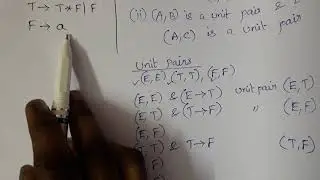 T → T * F | F
F → a
(ii) (A, B) is a unit pair &
(A, C) is a unit
Unit pairs
(E, E), (T, T), (F, F)
(E, E) & (E → T) unit pair (E, T)
(E, T) & (T → F) " (E, F)
(E, F)
(T, T) & T → F (T, F)
F)